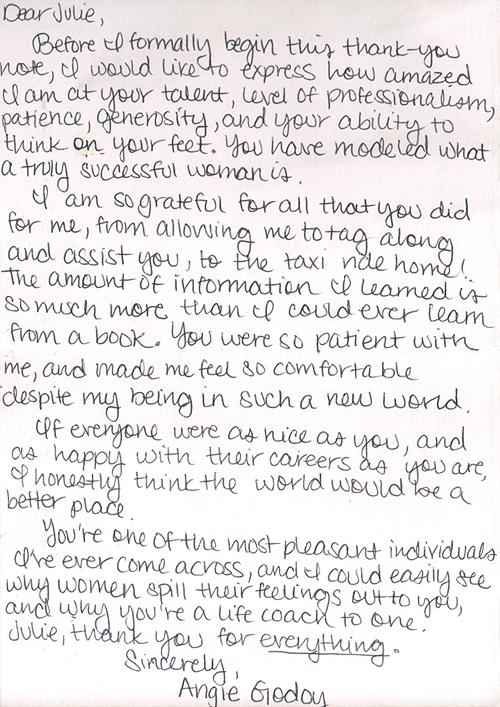 Dear Julie,
Before I formally begin this thank-you
note, I would like to express how amazed
I am at your talent, level of professionalism,
patience, generosity, and your ability to
think on your feet. You have modeled what
a truly successful woman is.
I am so grateful for all that you did
for me, from allowing me to tag along
and assist you, to the taxi ride home!
The amount of information I learned is
so much more than I could ever learn
from a book. You were so patient with
me, and made me feel so comfortable
despite my being in such a new world.
If everyone were as nice as you, and
as happy with their careers as you are,
I honestly think the world would be a
better place.
You're one of the most pleasant individuals
I've ever come across, and I could easily see
why women spill their feelings out to you,
and why you're a life coach to one.
Julie, thank you for everything.
Sincerely,
Angie Godoy